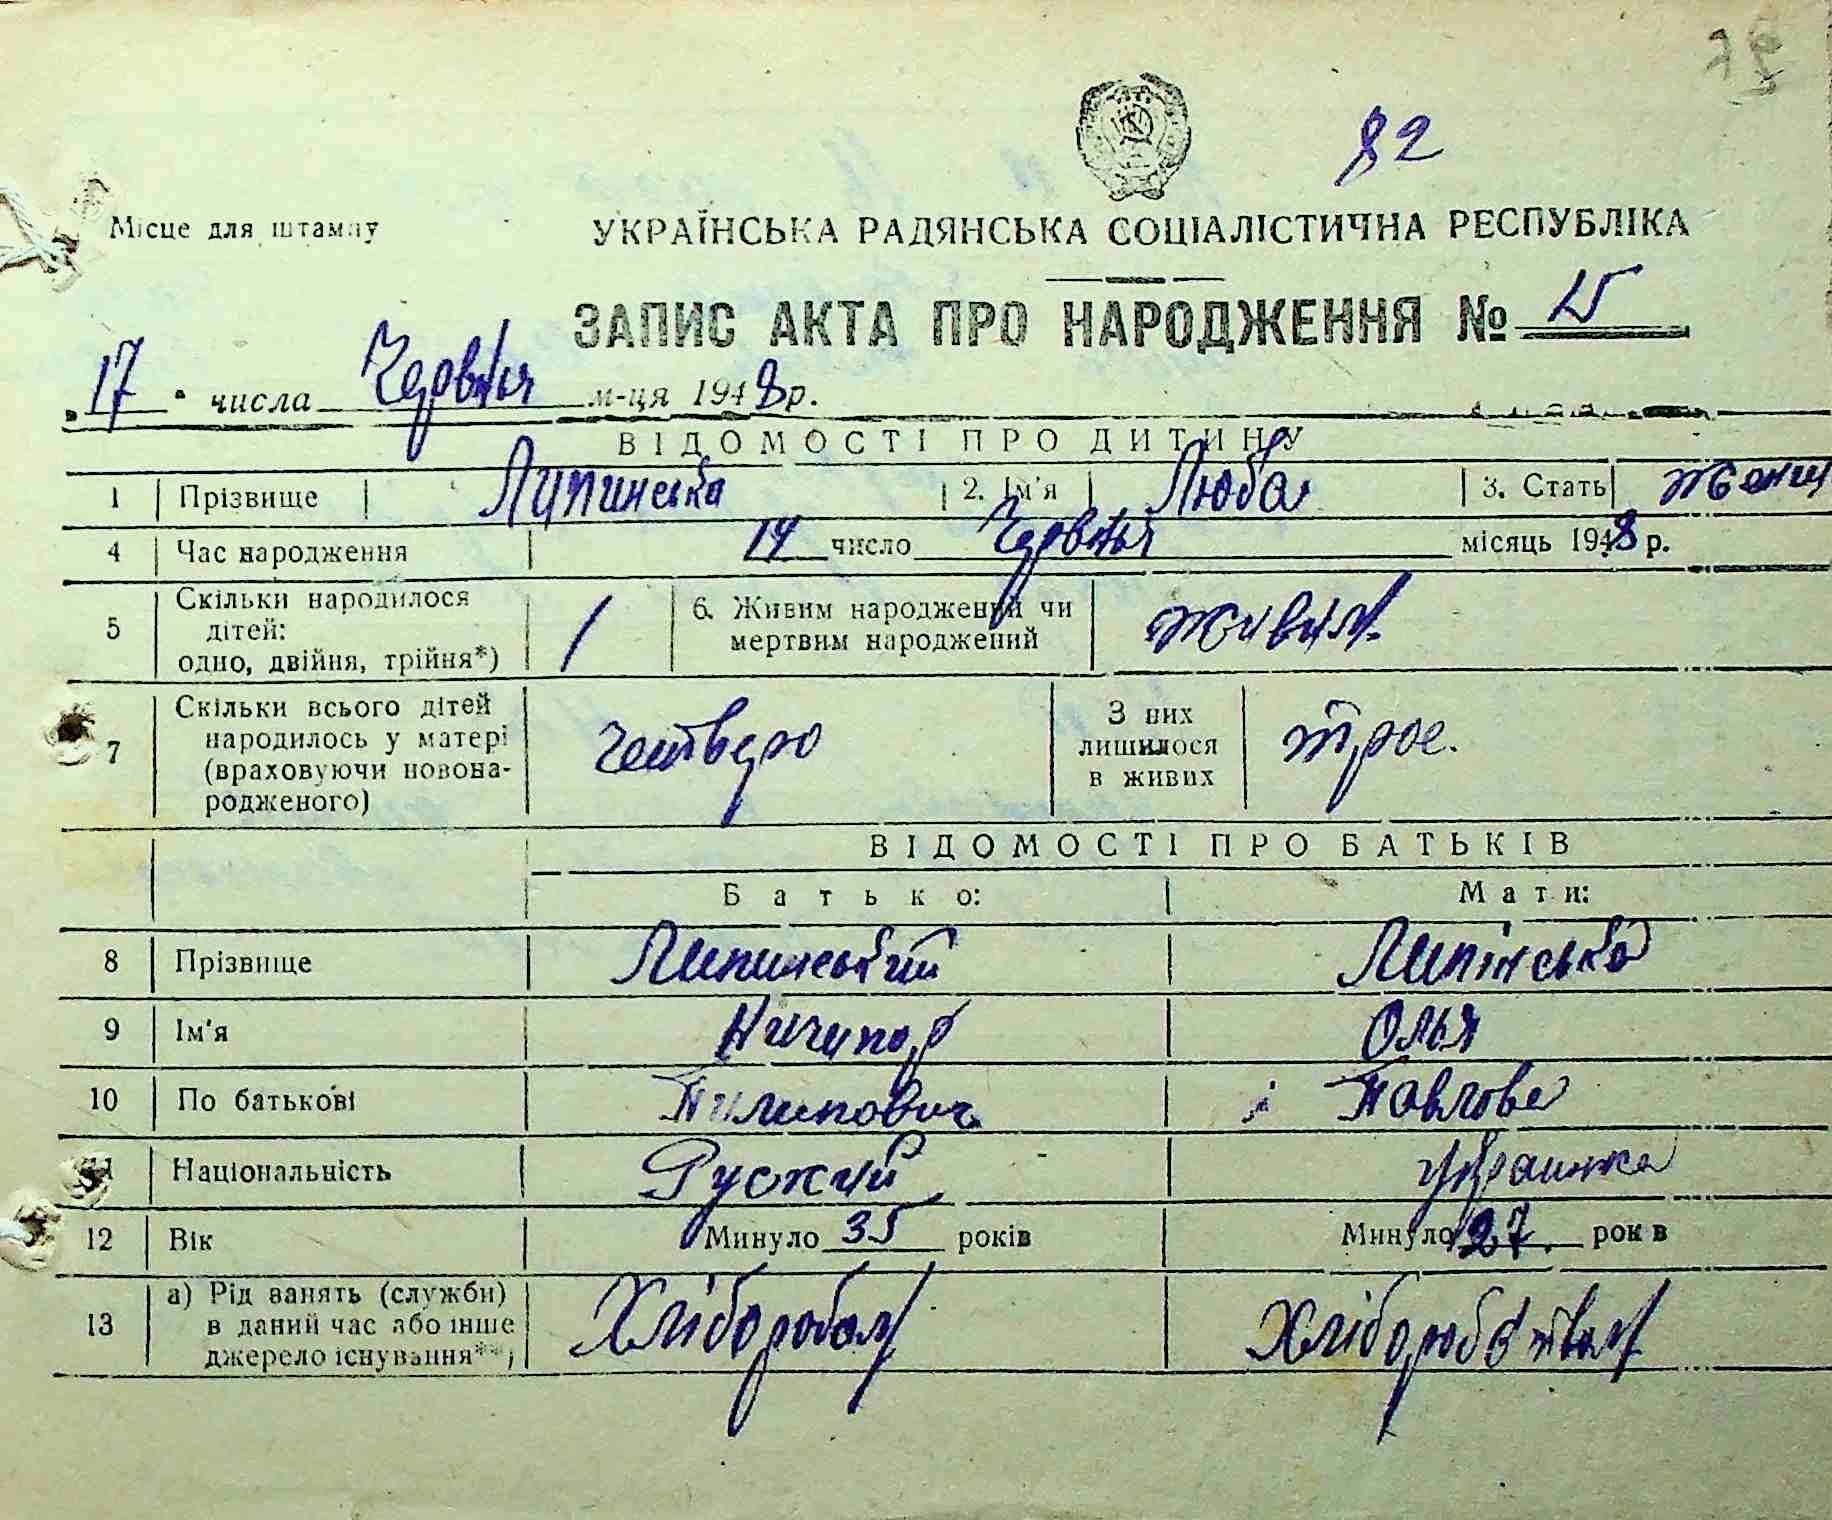 82
Місце для штампу
УКРАЇНСЬКА РАДЯНСЬКА СОЦІАЛІСТИЧНА РЕСПУБЛІКА
ЗАПИС АКТА ПРО НАРОДЖЕННЯ № 15
„17“ числа Червня м-ця 1948 р.
ВІДОМОСТІ ПРО ДИТИНУ
1 Прізвище Липинська 2. Ім'я Люба 3. Стать
4 Час народження 14 число Червня місяць 1948 р.
5 Скільки народилося
дітей:
одно, двійня, трійня*)
1
6. Живим народжений чи
мертвим народжений
живим.
7 Скільки всього дітей
народилось у матері
(враховуючи новона-
родженого)
четверо
З них
лишилося
в живих
троє.
ВІДОМОСТІ ПРО БАТЬКІВ
Батько: Мати:
8 Прізвище Липинський Липінська
9 Ім'я Ничипор Олья
10 По батькові Пилипович Павлова
11 Національність Руский Украинка
12 Вік Минуло 35 років Минуло 27. рок в
13 а) Рід занять (служби)
в даний час або інше
джерело існування**)
Хлібороболм Хлібороб'твом